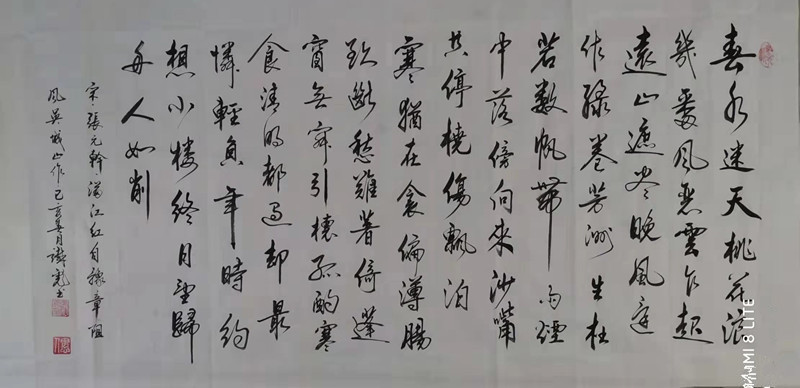 春水迷天桃花浪
幾番風惡雲乍起
遠山遮盡晚風還
作緑卷芳洲生杜
若數帆帶雨煙
中落傍向來沙嘴
共停橈傷飄泊
寒猶在衾偏薄腸
欲斷愁難著倚蓬
窗無寐引杯孤酌寒
食清明都過却最
憐輕負年時約
想小樓終日望歸
舟人如削
宋張元幹滿江紅自豫章阻
風吳城山作己亥春月
MI 8 LITE